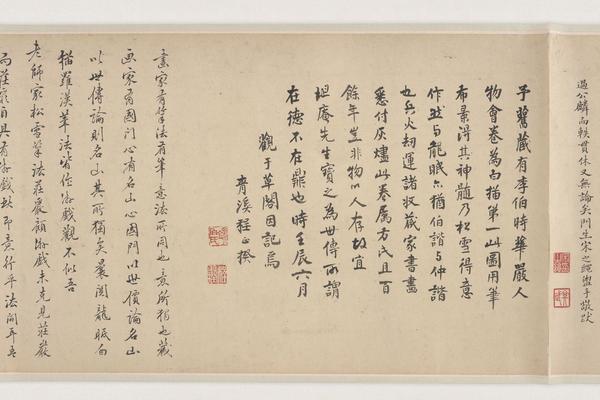 過公麟而軼貫休又無論矣門生宋之繩盥手敬跋
予舊藏有李伯時華嚴人
物會卷為白描第一此圖用筆
布景得其神髓乃松雪得意
作與龍眠亦猶伯諧与仲諧
也兵火劫運諸收藏家書畫
悉付灰燼此卷屬方氏且百
餘年豈非物以人存故宜
坦庵先生寶之為世傳所謂
在德不在鼎也時壬辰六月
觀于草閣因記焉
青溪程正揆
畫家有筆法有筆意法所同也意所獨也藏
画家有國門心有名山心國門以世價論名山
以世傳論則名山其所獨矣曩閱龍眠白
描羅漢筆法皆作游戲觀不似吾
老師家松雪筆法莊嚴游戲未免見莊嚴
而莊嚴自具有游戲故即意行乎法